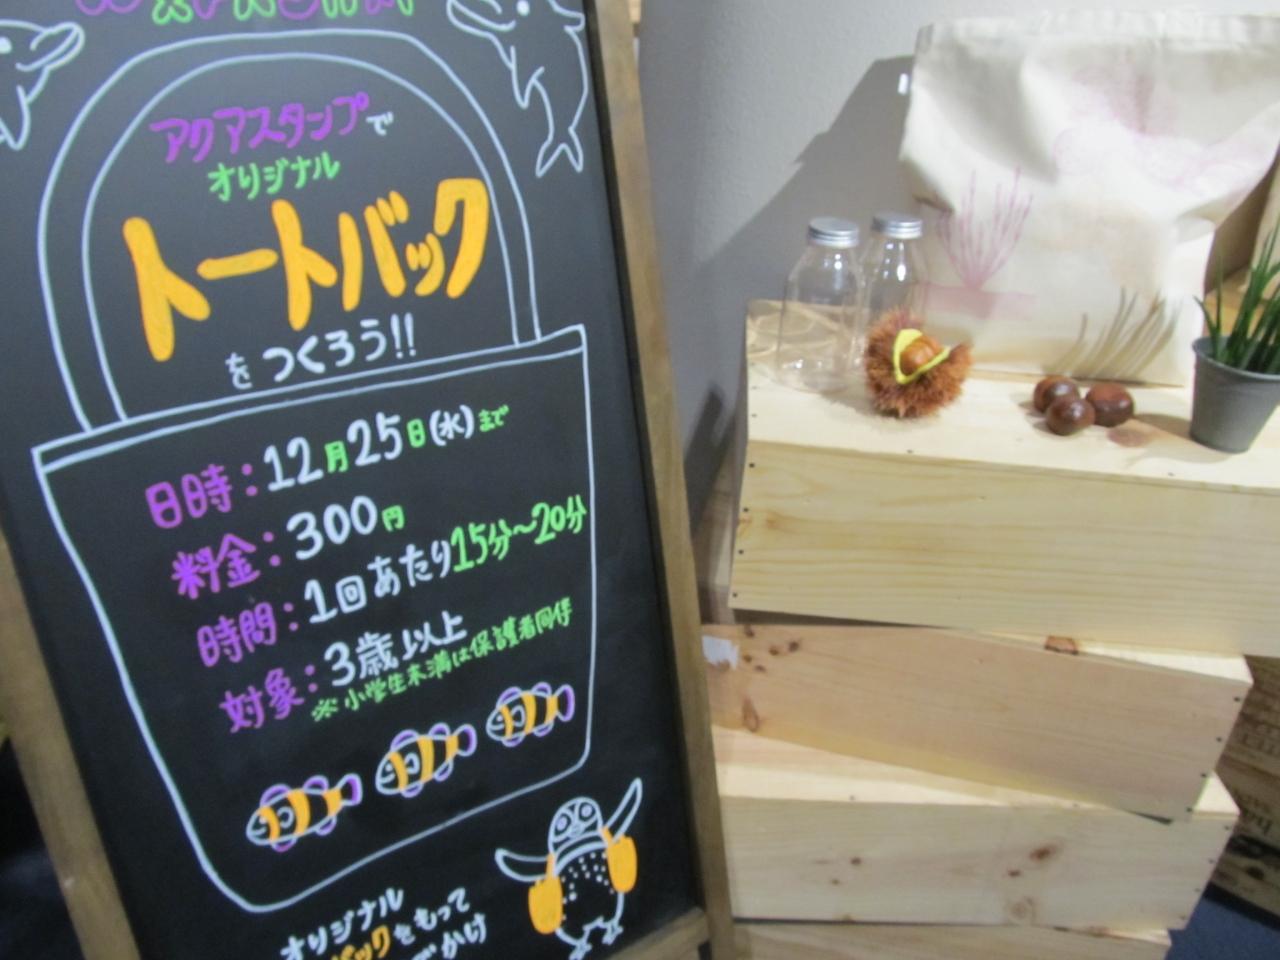 アクアスタンプで
オリジナル
トートバック
をつくろう!!
日時：12月25日(水)まで
料金：300円
時間：1回あたり15分～20分
対象：3歳以上
※小学生未満は保護者同伴
オリジナル
バックをもって
でかけ